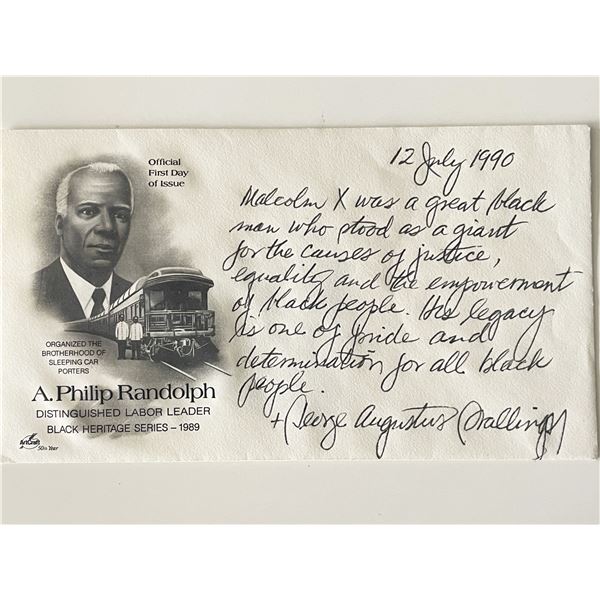 Official
First Day
of Issue
ORGANIZED THE
BROTHERHOOD OF
SLEEPING CAR
PORTERS
A. Philip Randolph
DISTINGUISHED LABOR LEADER
BLACK HERITAGE SERIES – 1989
ArtCraft
50th Year
12 July 1990
Malcolm X was a great black
man who stood as a giant
for the causes of justice,
equality and the empowerment
of black people. His legacy
is one of pride and
determination for all black
people.
+ George Augustus Stallings